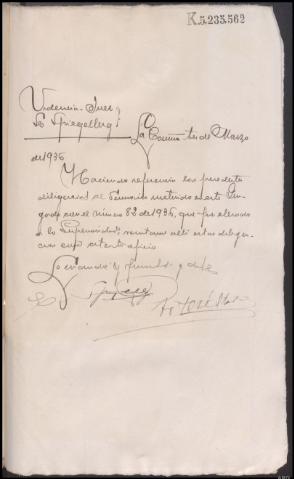 K.5.235.562
Providencia Juez
Sr Spiegelberg
La Coruña tres de Marzo
de 1936
Haciendo referencia las presentes
diligencias al sumario instruido en este Juz-
gado con el número 82 de 1936, que fue elevado
a la Superioridad, remítanse allí estas diligen-
cias con atento oficio
Lo mandó y firma S.S. doy fe